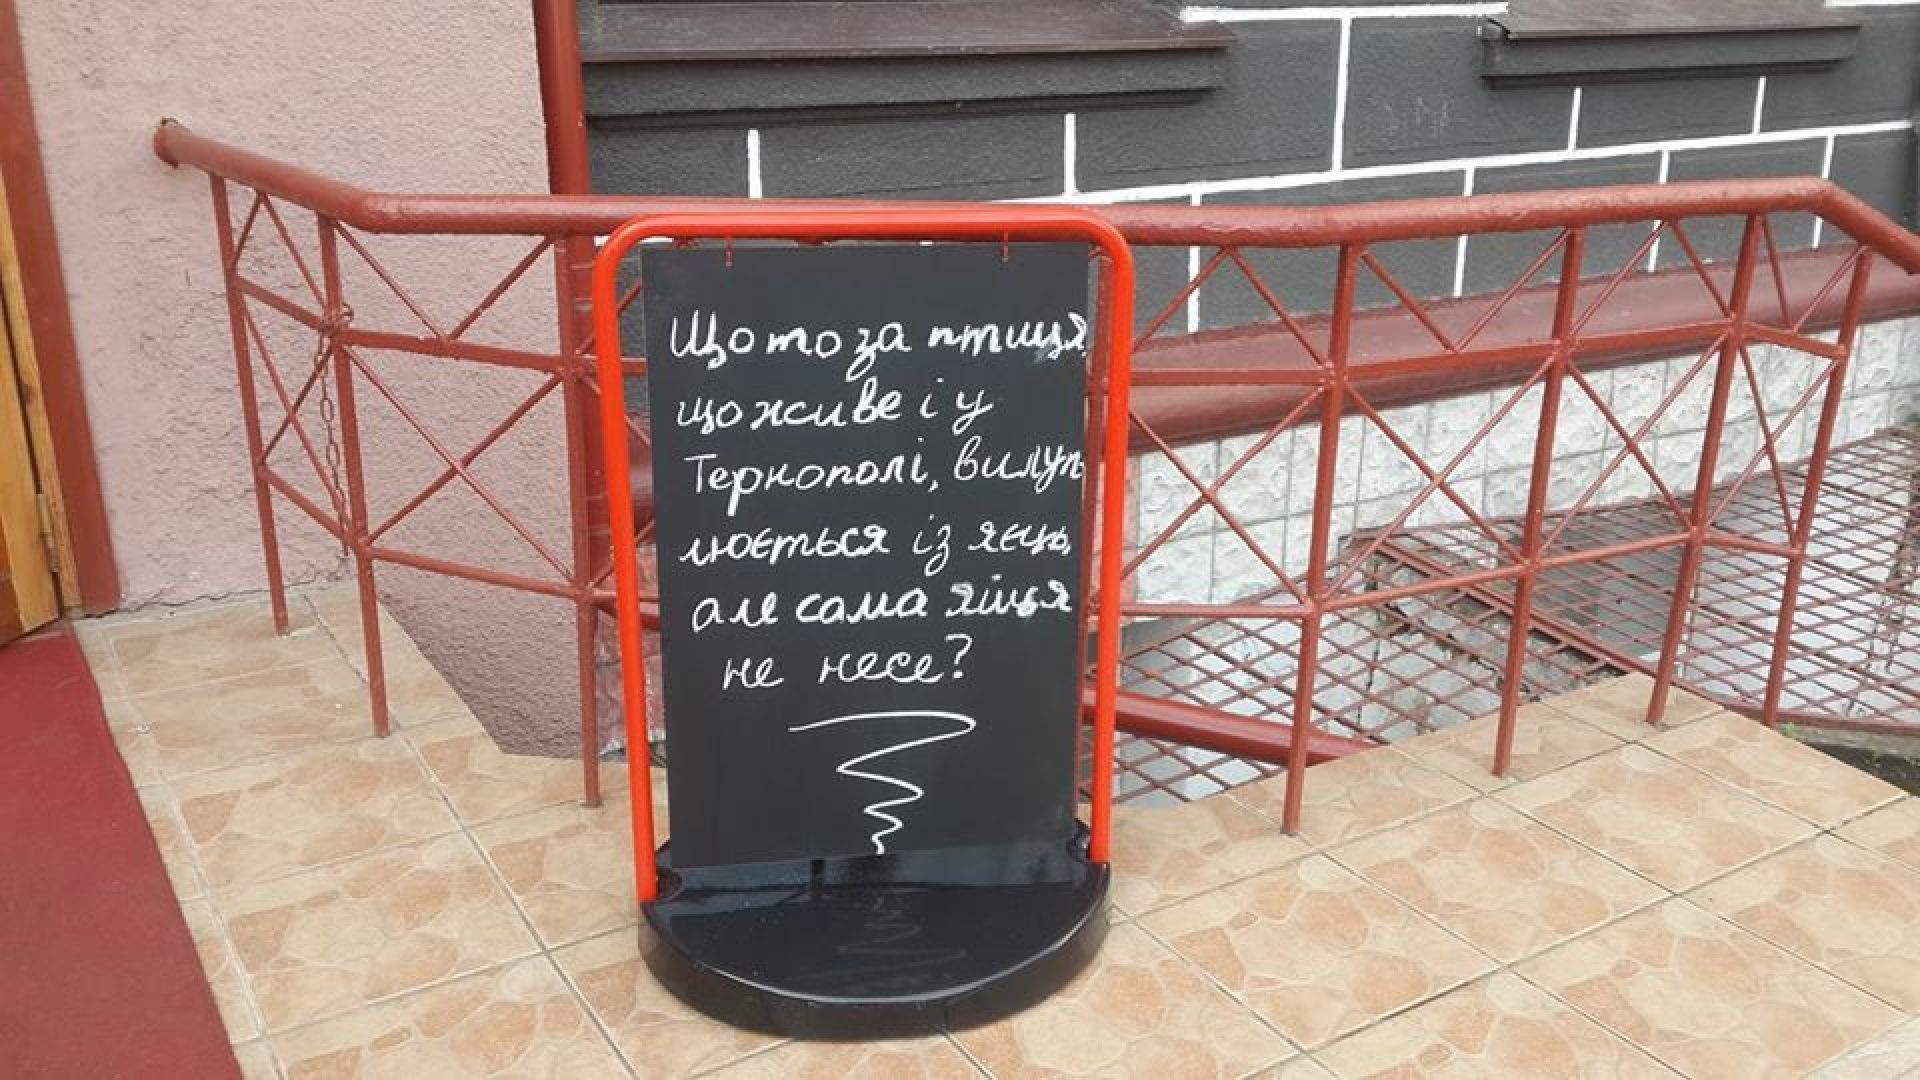 Що то за птиця,
що живе і у
Тернополі, вилуп-
люється із яєць,
але сама яйця
не несе?